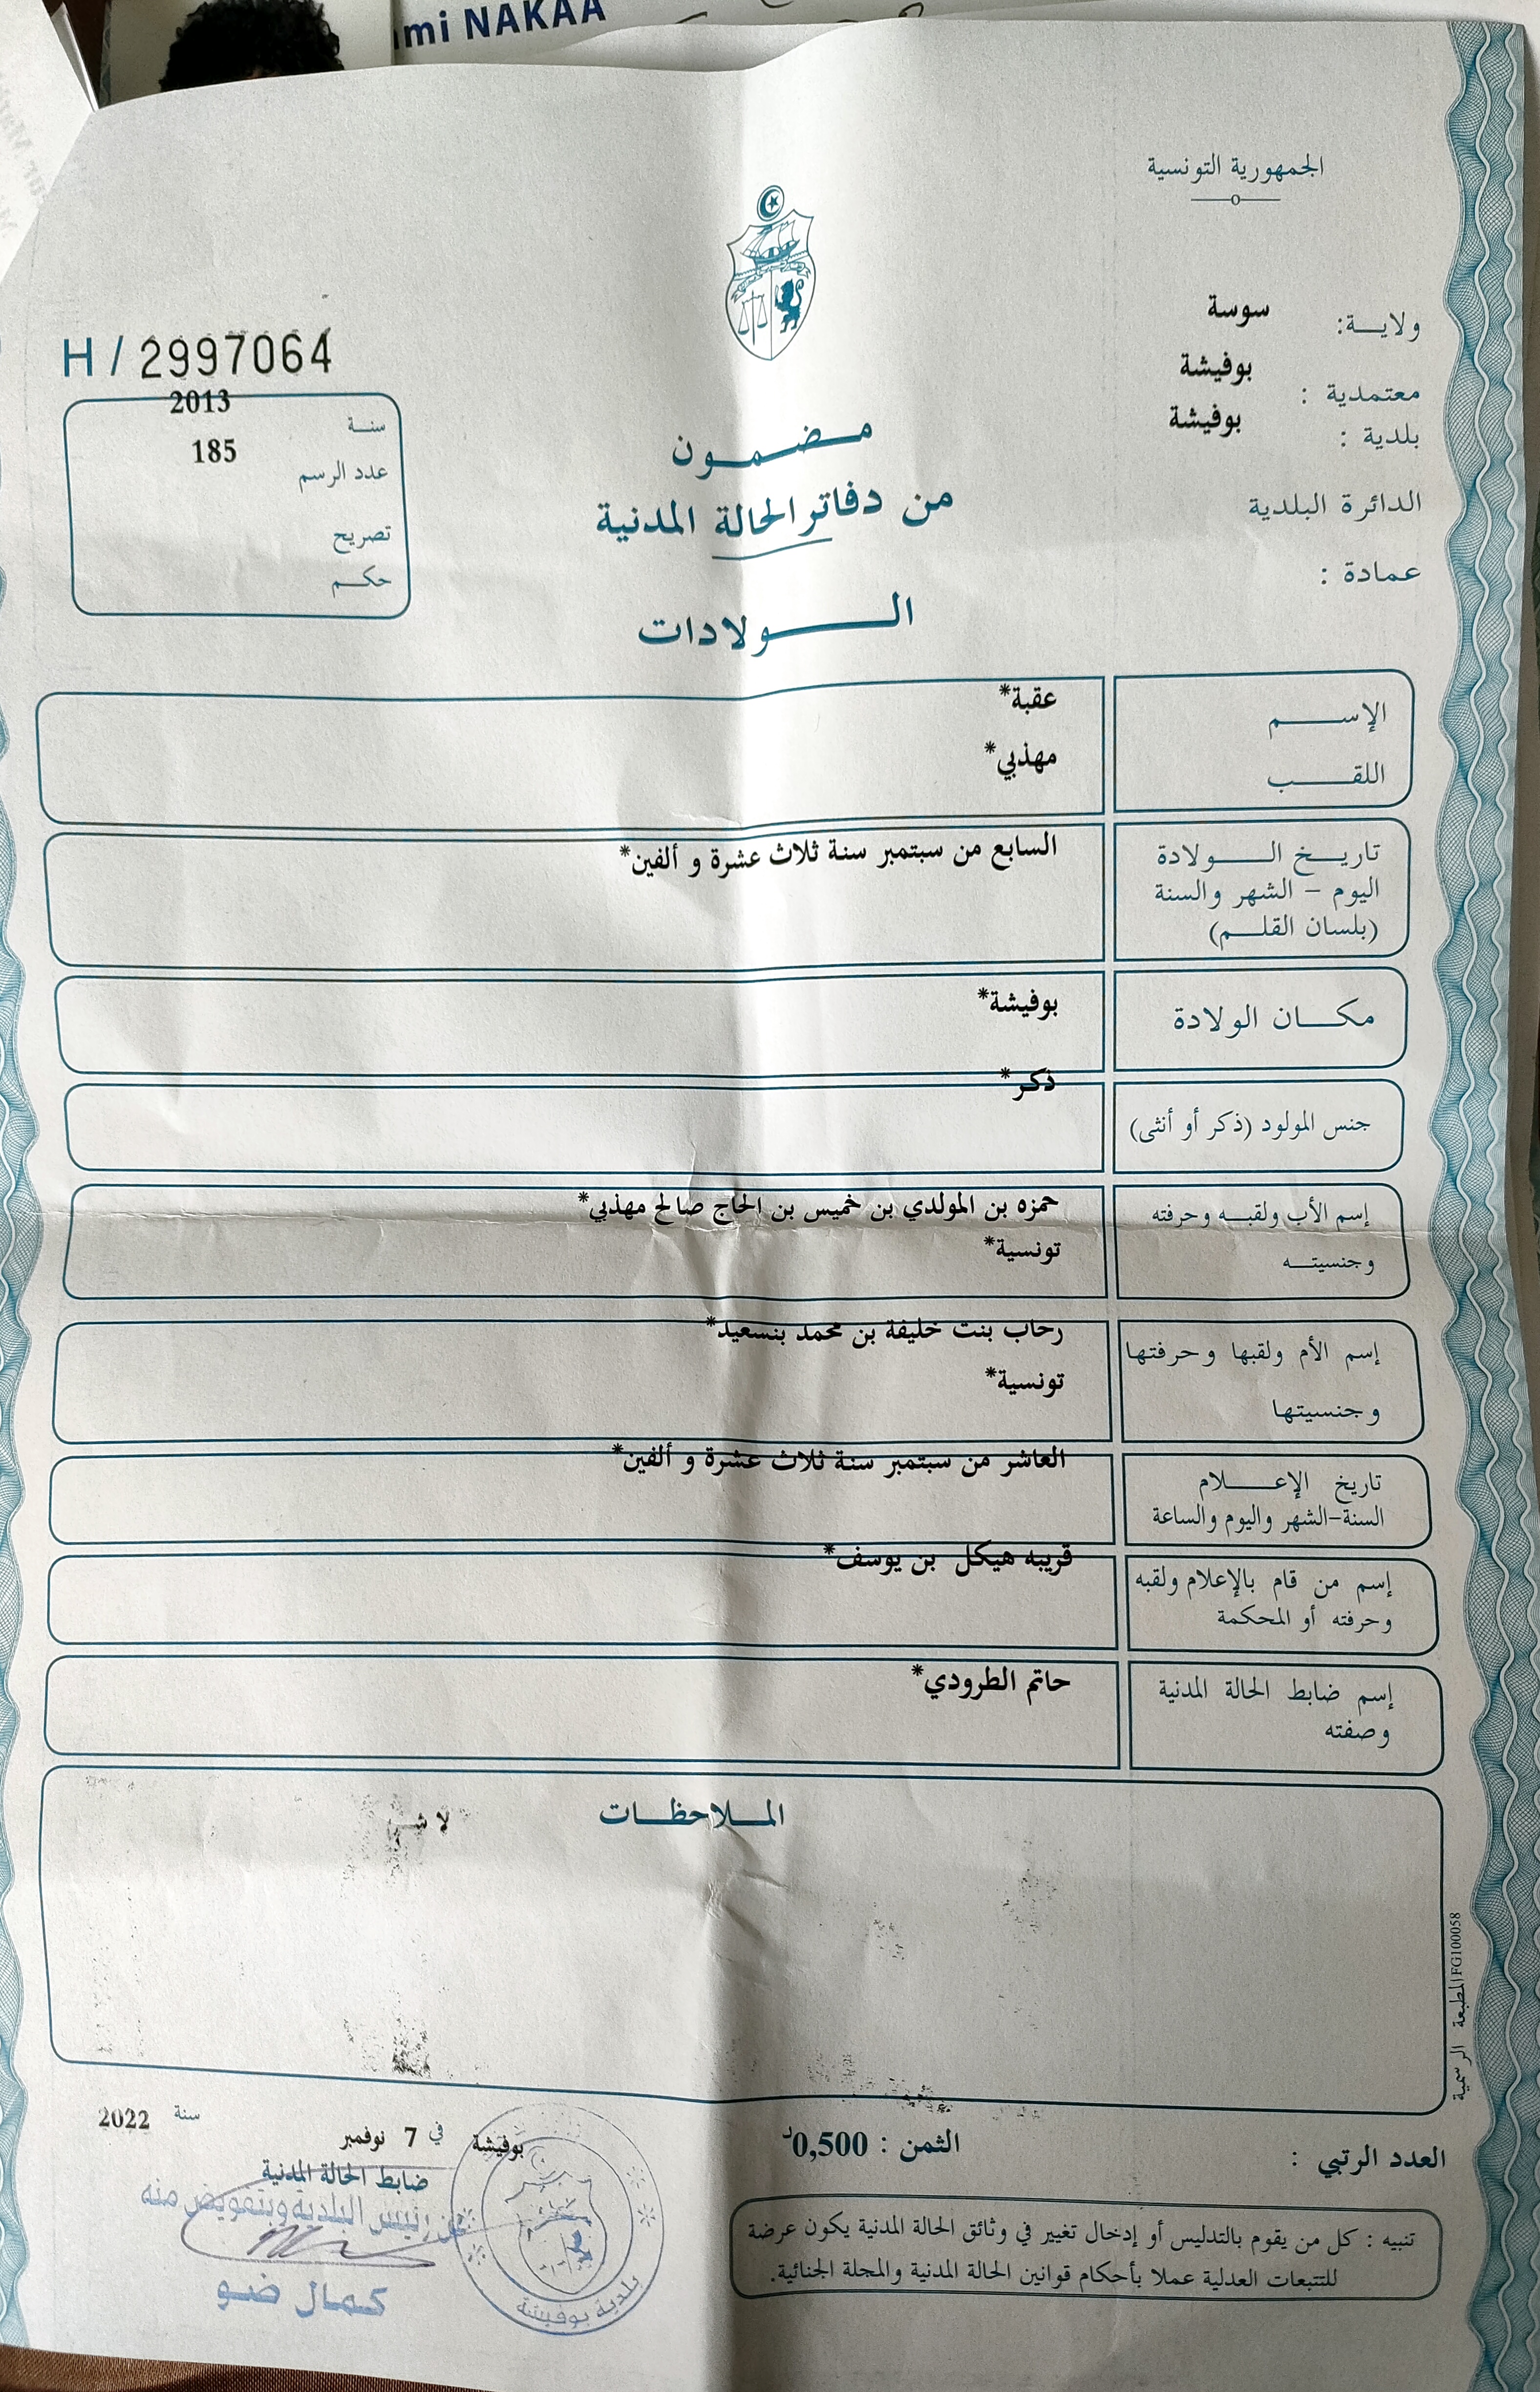 mi NAKAA
الجمهورية التونسية
ولاية: سوسة
معتمدية : بوفيشة
بلدية : بوفيشة
الدائرة البلدية
عمادة :
H / 2997064
سنة 2013
عدد الرسم 185
تصريح
حكم
مضمون
من دفاتر الحالة المدنية
الولادات
الإسم عقبة*
اللقب مهذبي*
تاريخ الولادة السابع من سبتمبر سنة ثلاث عشرة و ألفين*
اليوم - الشهر والسنة
(بلسان القلم)
مكان الولادة بوفيشة*
جنس المولود (ذكر أو أنثى) ذكر*
إسم الأب ولقبه وحرفته حمزه بن المولدي بن خميس بن الحاج صالح مهذبي*
وجنسيته تونسية*
إسم الأم ولقبها وحرفتها رحاب بنت خليفة بن محمد بنسعيد*
وجنسيتها تونسية*
تاريخ الإعلام العاشر من سبتمبر سنة ثلاث عشرة و ألفين*
السنة-الشهر واليوم والساعة
إسم من قام بالإعلام ولقبه قريبه هيكل بن يوسف*
وحرفته أو المحكمة
إسم ضابط الحالة المدنية حاتم الطرودي*
وصفته
الملاحظات لا
المطبعة الرسمية FG100058
العدد الرتبي :
الثمن : 0,500د
بوفيشة في 7 نوفمبر سنة 2022
ضابط الحالة المدنية
عن رئيس البلدية وبتفويض منه
كمال ضو
بلدية بوفيشة
تنبيه : كل من يقوم بالتدليس أو إدخال تغيير في وثائق الحالة المدنية يكون عرضة
للتتبعات العدلية عملا بأحكام قوانين الحالة المدنية والمجلة الجنائية.